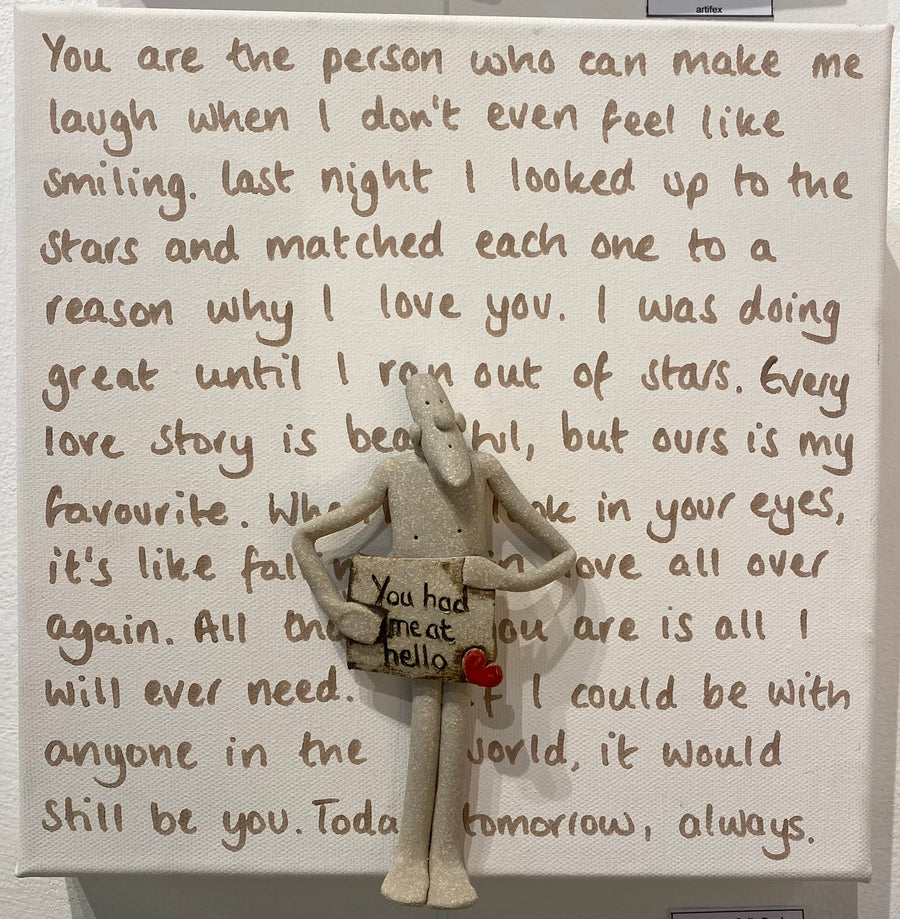 artifex
You are the person who can make me
laugh when I don't even feel like
smiling. Last night I looked up to the
stars and matched each one to a
reason why I love you. I was doing
great until I ran out of stars. Every
love story is bea ful, but ours is my
favourite. Whe look in your eyes,
it's like fallin in love all over
again. All you are is all I
will ever need. If I could be with
anyone in the world, it would
still be you. Toda tomorrow, always.
You had
me at
hello